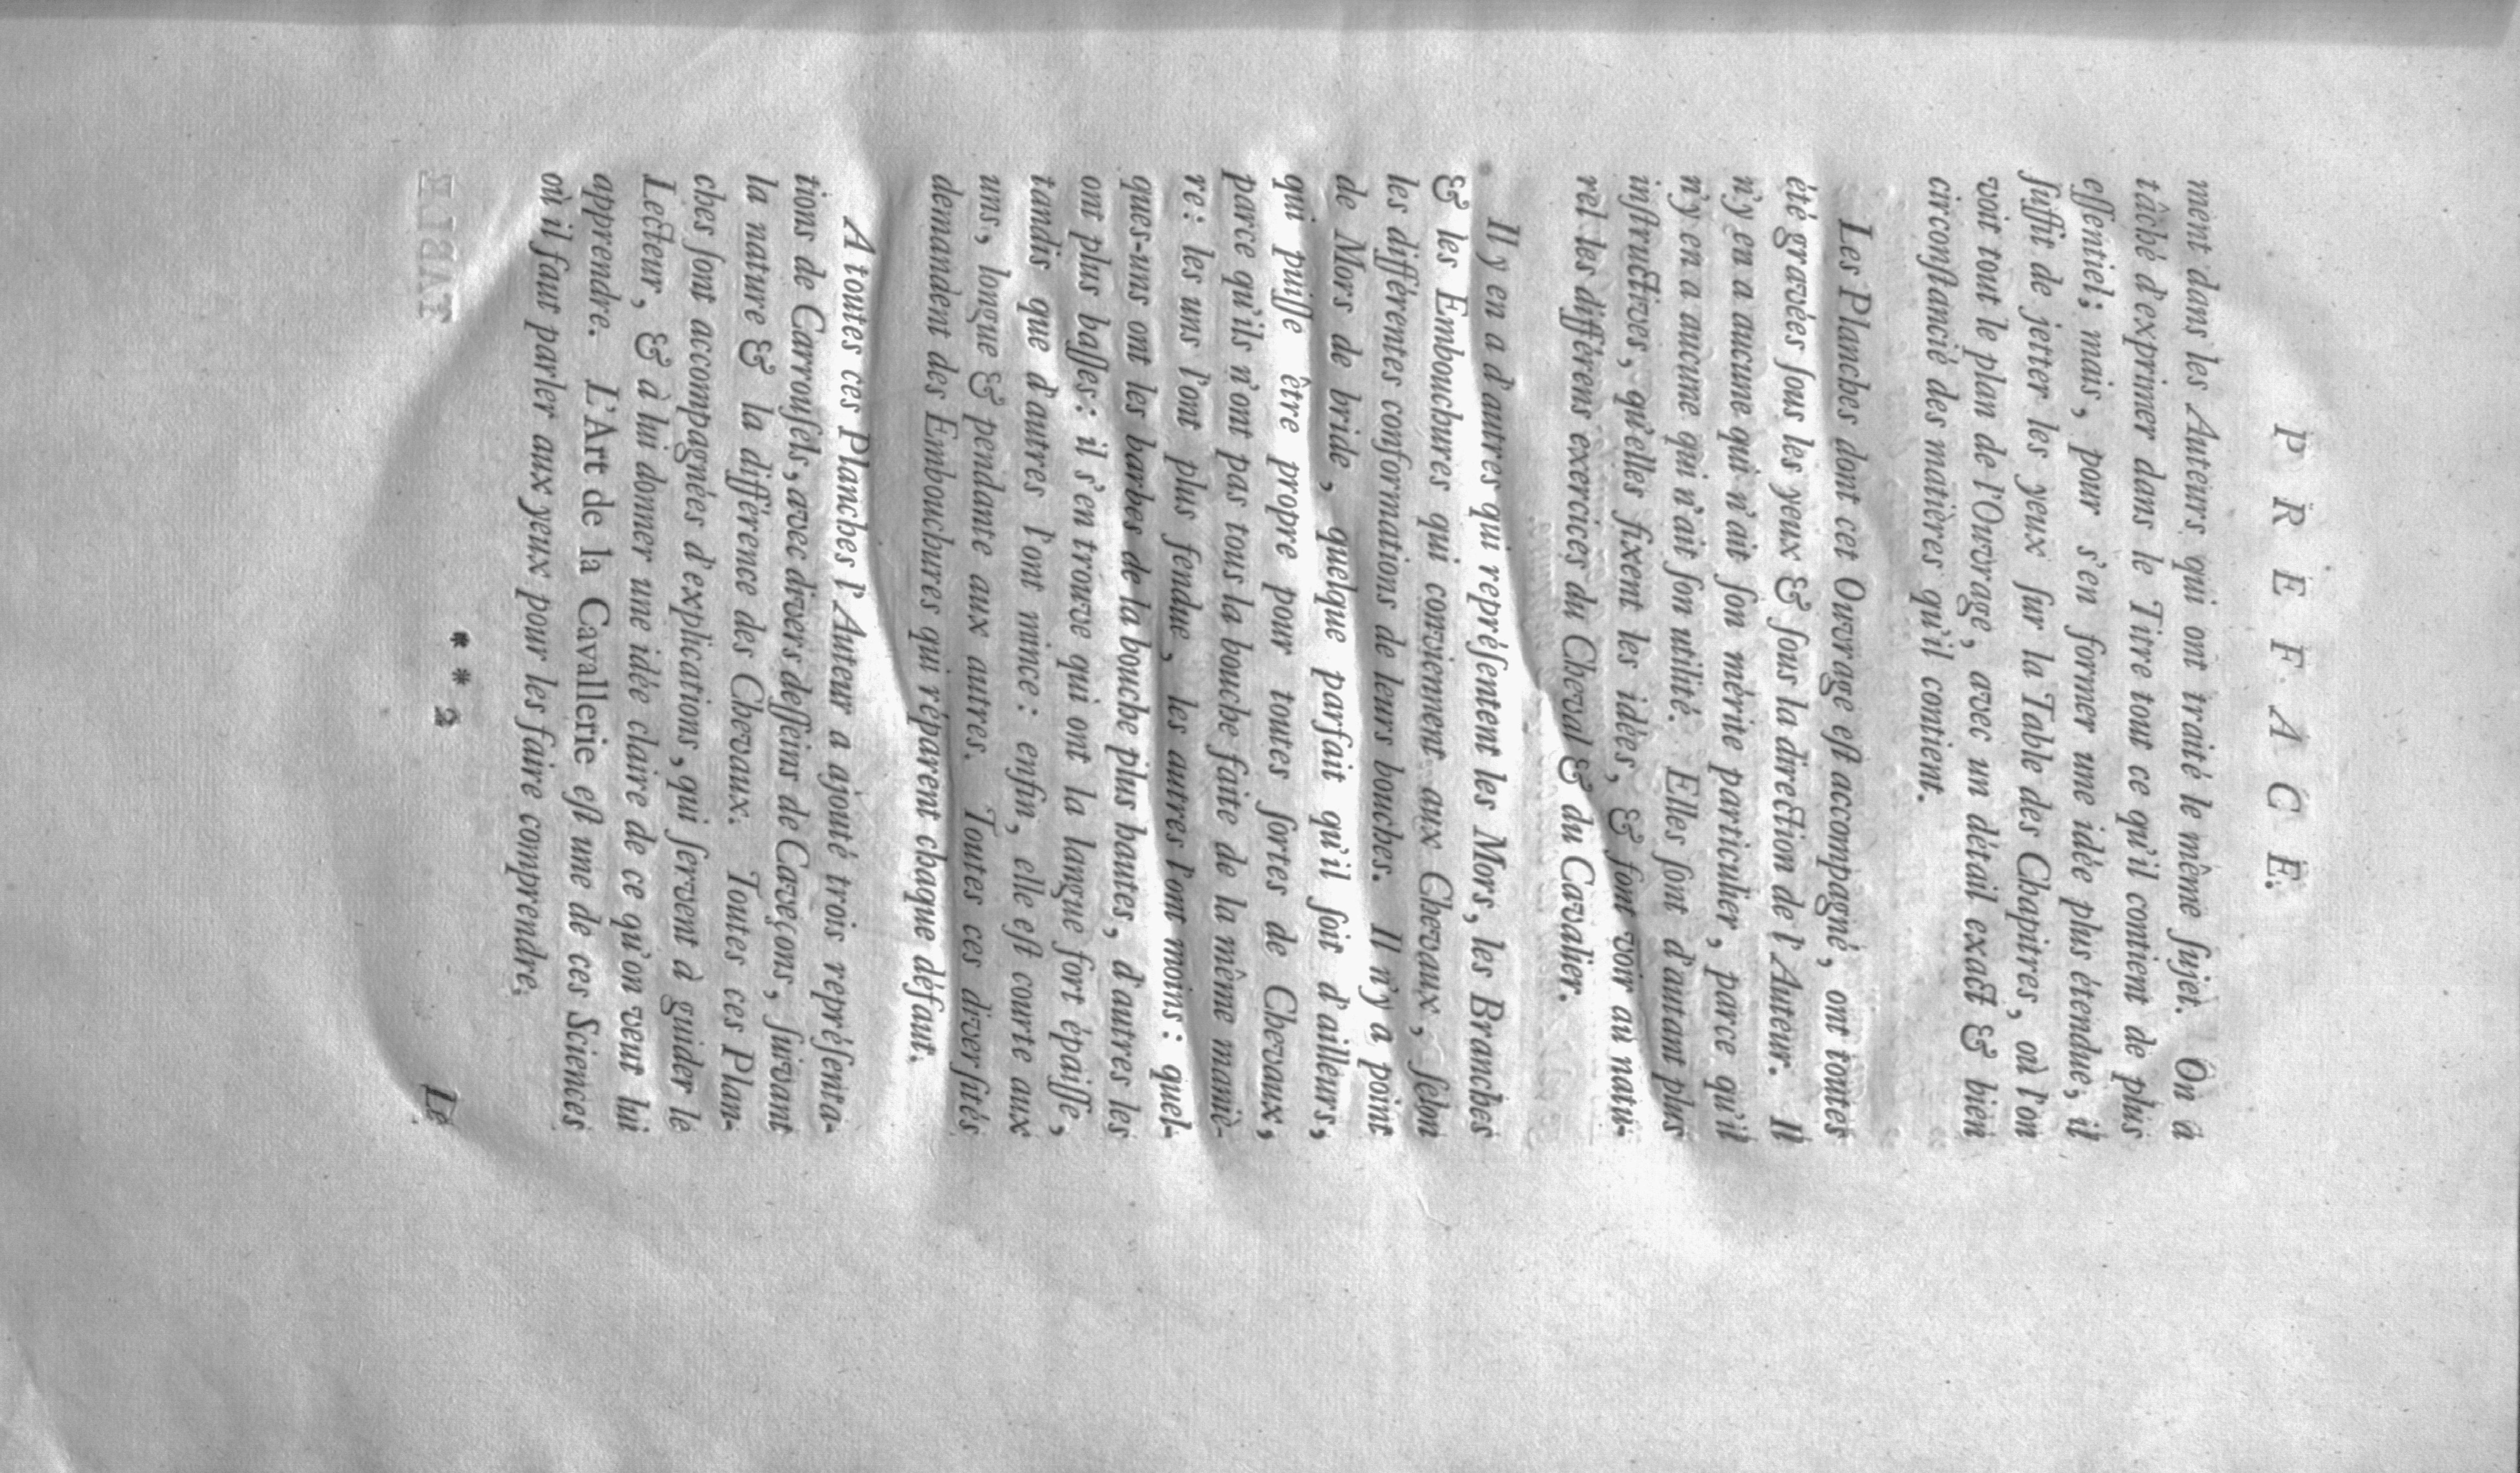 PREFACE.
ment dans les Auteurs qui ont traité le même ſujet. On a
tâché d'exprimer dans le Titre tout ce qu'il contient de plus
eſſentiel; mais, pour s'en former une idée plus étendue, il
ſuffit de jetter les yeux ſur la Table des Chapitres, où l'on
voit tout le plan de l'Ouvrage, avec un détail exact & bien
circonſtancié des matières qu'il contient.
Les Planches dont cet Ouvrage eſt accompagné, ont toutes
été gravées ſous les yeux & ſous la direction de l'Auteur. Il
n'y en a aucune qui n'ait ſon mérite particulier, parce qu'il
n'y en a aucune qui n'ait ſon utilité. Elles ſont d'autant plus
inſtructives, qu'elles fixent les idées, & font voir au natu-
rel les différens exercices du Cheval & du Cavalier.
Il y en a d'autres qui repréſentent les Mors, les Branches
& les Embouchures qui conviennent aux Chevaux, ſelon
les différentes conformations de leurs bouches. Il n'y a point
de Mors de bride, quelque parfait qu'il ſoit d'ailleurs,
qui puiſſe être propre pour toutes ſortes de Chevaux,
parce qu'ils n'ont pas tous la bouche faite de la même maniè-
re: les uns l'ont plus fendue, les autres l'ont moins: quel-
ques-uns ont les barbes de la bouche plus hautes, d'autres les
ont plus baſſes: il s'en trouve qui ont la langue fort épaiſſe,
tandis que d'autres l'ont mince: enfin, elle eſt courte aux
uns, longue & pendante aux autres. Toutes ces diverſités
demandent des Embouchures qui réparent chaque défaut.
A toutes ces Planches l'Auteur a ajouté trois repréſenta-
tions de Carrouſels, avec divers deſſeins de Caveçons, ſuivant
la nature & la différence des Chevaux. Toutes ces Plan-
ches ſont accompagnées d'explications, qui ſervent à guider le
Lecteur, & à lui donner une idée claire de ce qu'on veut lui
apprendre. L'Art de la Cavallerie eſt une de ces Sciences
où il faut parler aux yeux pour les faire comprendre.
* * 2 Le